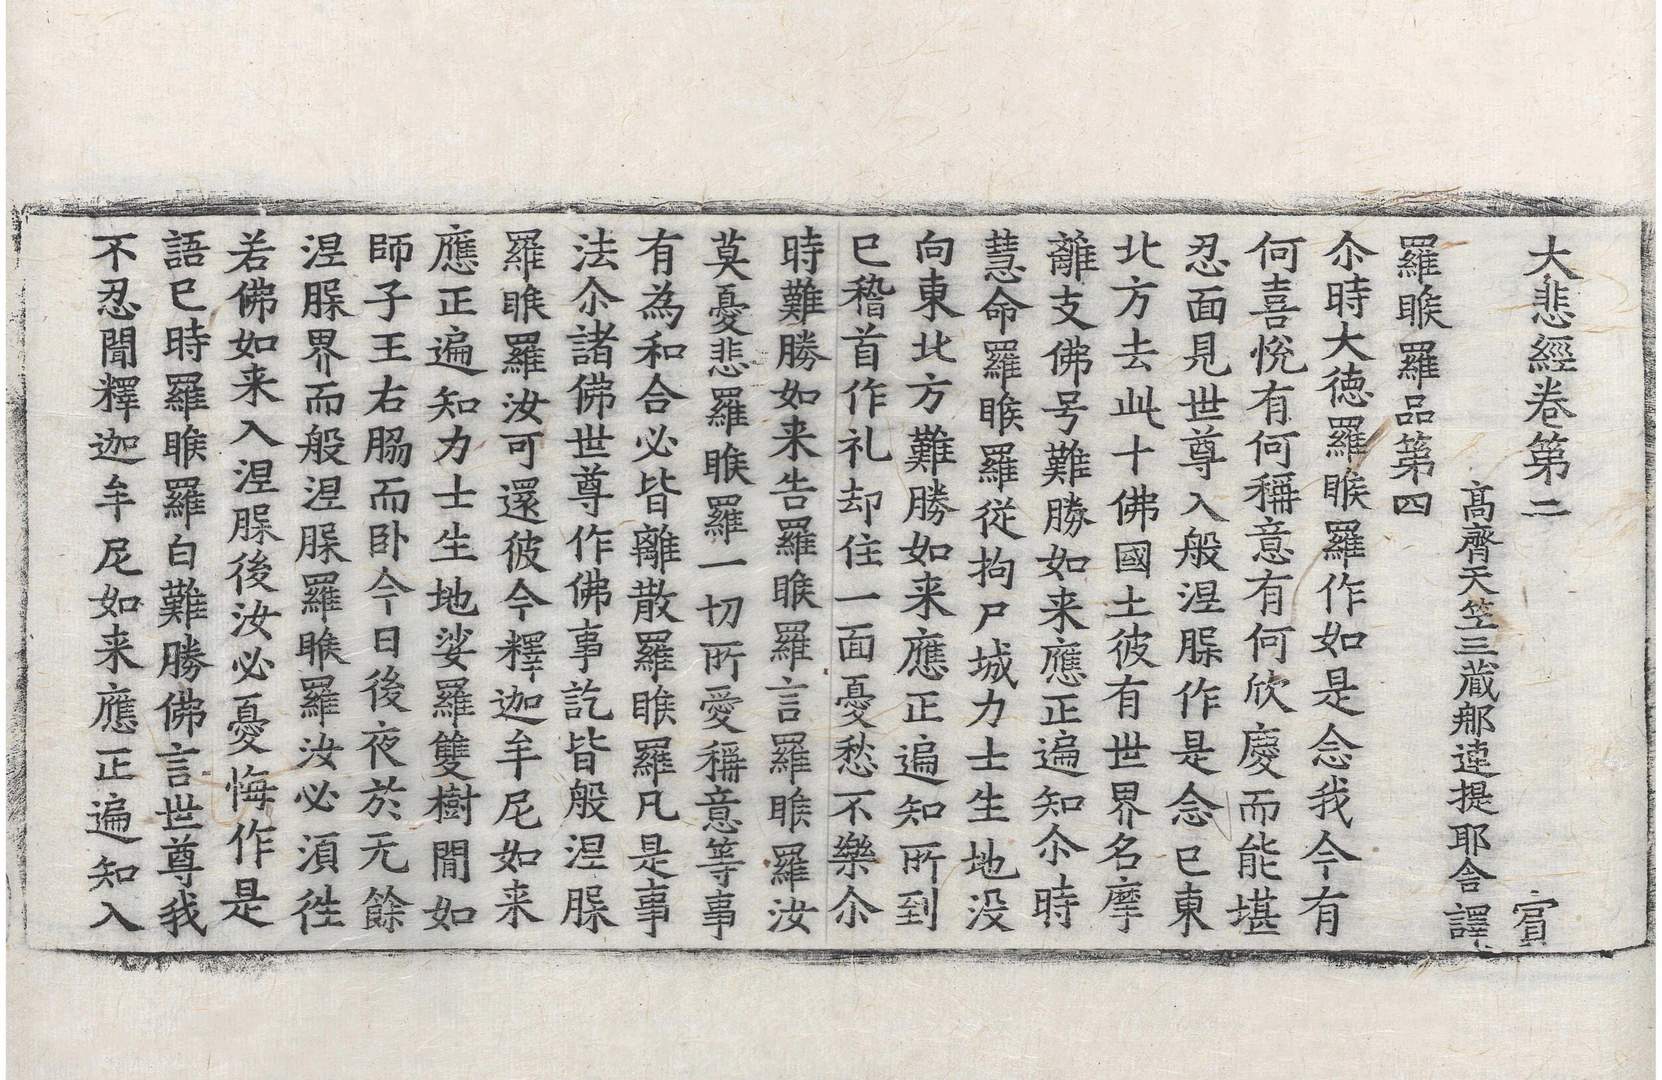 大悲經卷第二　賔
高齊天竺三藏那連提耶舍譯
羅睺羅品第四
尒時大德羅睺羅作如是念我今有
何喜悅有何稱意有何欣慶而能堪
忍面見世尊入般涅脲作是念已東
北方去此十佛國土彼有世界名摩
離支佛号難勝如来應正遍知尒時
慧命羅睺羅從拘尸城力士生地没
向東北方難勝如来應正遍知所到
已稽首作礼却住一面憂愁不樂尒
時難勝如来告羅睺羅言羅睺羅汝
莫憂悲羅睺羅一切所愛稱意等事
有為和合必皆離散羅睺羅凡是事
法尒諸佛世尊作佛事訖皆般涅脲
羅睺羅汝可還彼今釋迦牟尼如来
應正遍知力士生地娑羅雙樹閒如
師子王右脇而卧今日後夜於无餘
涅脲界而般涅脲羅睺羅汝必須徃
若佛如来入涅脲後汝必憂悔作是
語已時羅睺羅白難勝佛言世尊我
不忍聞釋迦牟尼如来應正遍知入